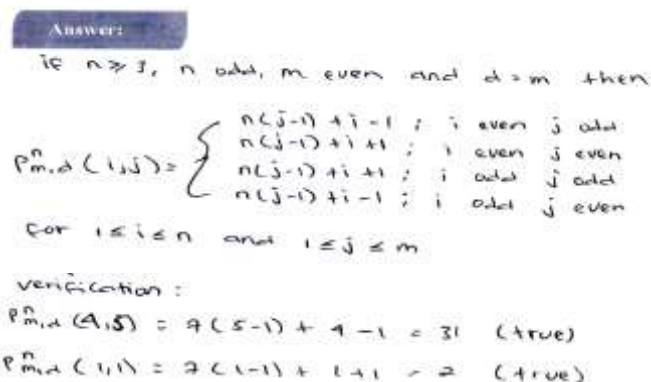 Answer:
if n ≥ 3, n odd, m even and d = m then
n(j-1) + i - 1 ; i even j odd
n(j-1) + i + 1 ; i even j even
P^n_{m,d} (i,j) = {
n(j-1) + i + 1 ; i odd j odd
n(j-1) + i - 1 ; i odd j even
for 1 ≤ i ≤ n and 1 ≤ j ≤ m
verification :
P^n_{m,d} (4,5) = 7(5-1) + 4 - 1 = 31 (true)
P^n_{m,d} (1,1) = 7(1-1) + 1+1 = 2 (true)